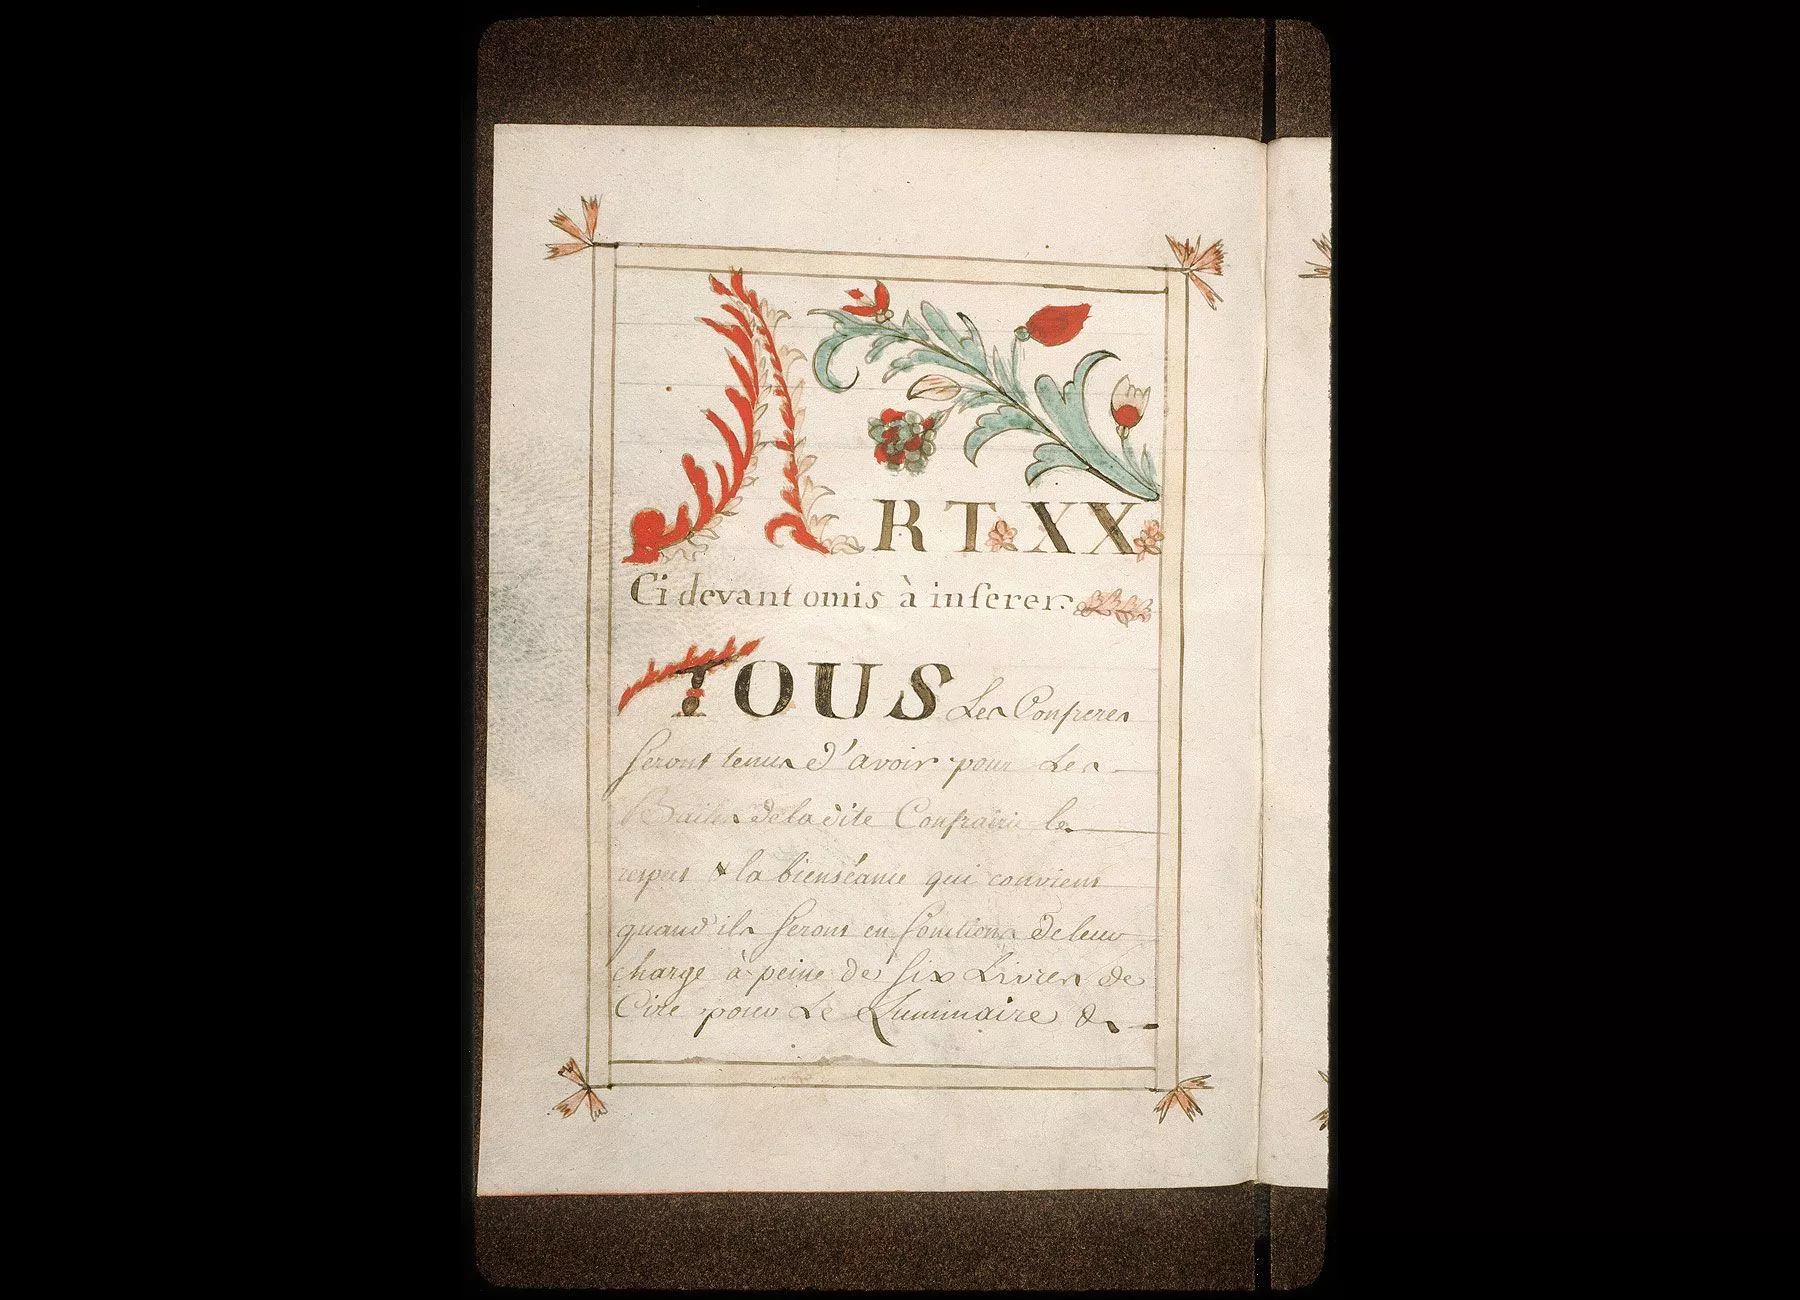 ART XX
Ci devant omis à inserer.
TOUS Les Confreres
seront tenus d'avoir pour Les
Bailes de la dite Confrairie le
respect & la bienséance qui convient
quand ils seront en fonctions de leur
charge à peine de six Livres de
Cire pour Le Luminaire &